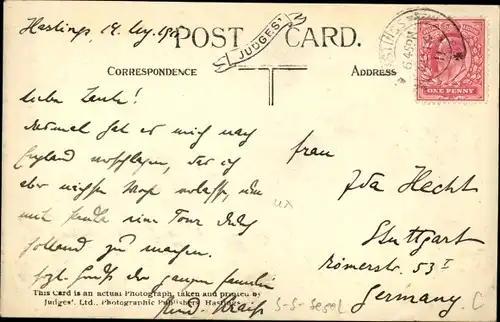 Hastings, 14. Aug. 190
POST CARD.
JUDGES'
CORRESPONDENCE
ADDRESS
HASTINGS
6.45PM
11
ONE PENNY
Liebe Tante!
Diesmal hat es mich nach
England verschlagen, das ich
aber nächste Woche verlasse, um
mit eine Tour durch
Holland zu machen.
Hzl. Grüße der ganzen Familie
Frau
Ida Hecht
Stuttgart
Römerstr. 53 I
Germany.
This Card is an actual Photograph, taken and printed by
Judges', Ltd., Photographic Publishers, Hastings
S-S-Segel
C